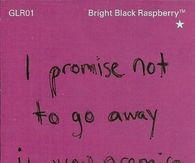 GLR01
Bright Black Raspberry™
I promise not
to go away